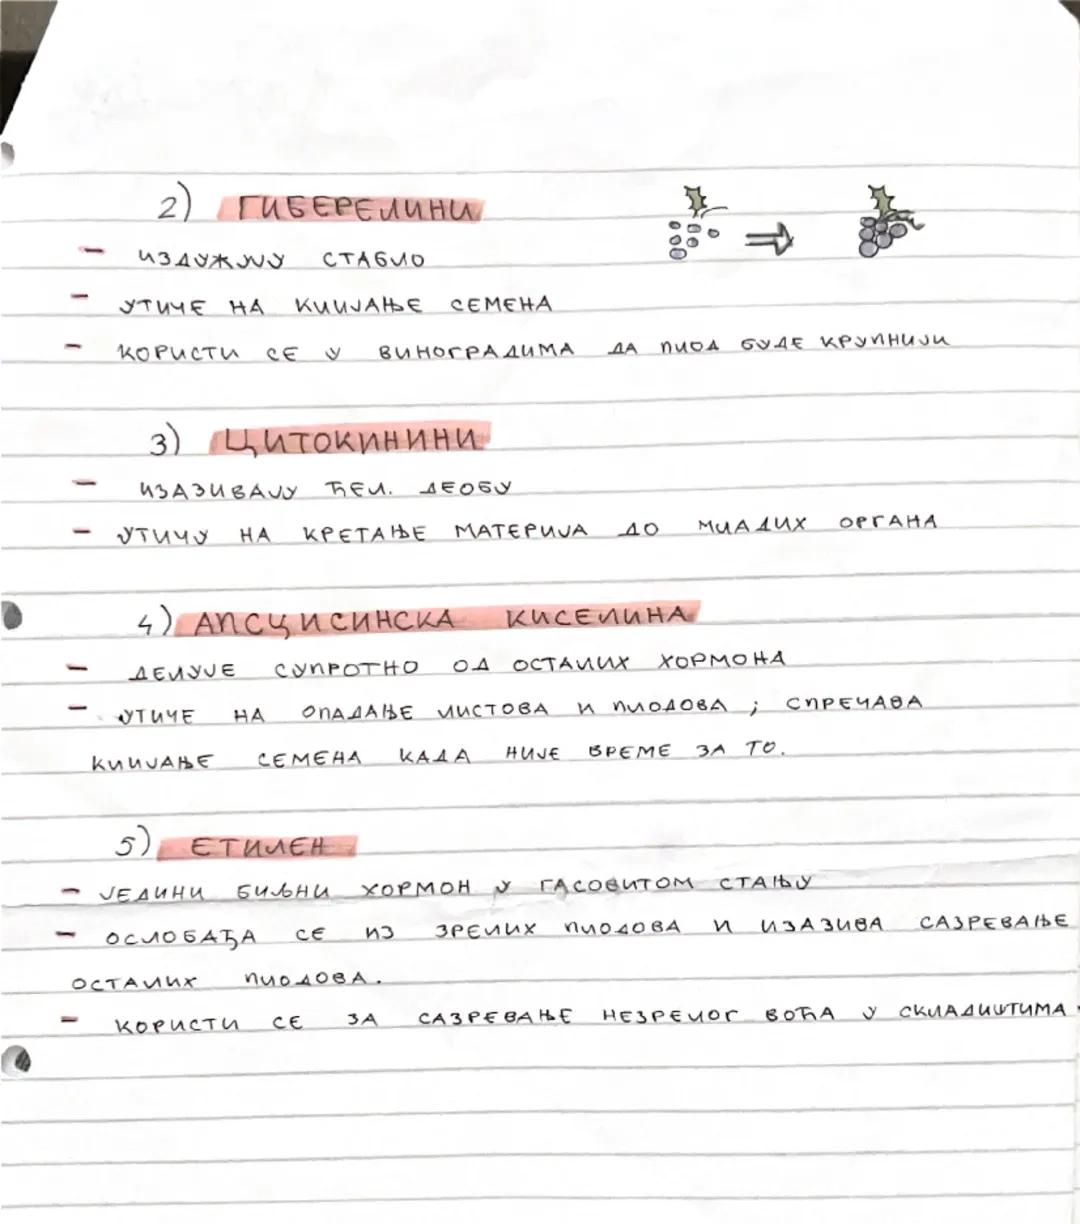 2) ГИБЕРЕЛИНИ
- ИЗДУЖУЈУ СТАБЛО
- УТИЧЕ НА КЛИЈАЊЕ СЕМЕНА
- КОРИСТИ СЕ У ВИНОГРАДИМА ДА ПЛОД БУДЕ КРУПНИЈИ
3) ЦИТОКИНИНИ
- ИЗАЗИВАЈУ ЋЕЛ. ДЕОБУ
- УТИЧУ НА КРЕТАЊЕ МАТЕРИЈА ДО МЛАДИХ ОРГАНА
4) АПСЦИСИНСКА КИСЕЛИНА
- ДЕЛУЈЕ СУПРОТНО ОД ОСТАЛИХ ХОРМОНА
- УТИЧЕ НА ОПАДАЊЕ ЛИСТОВА И ПЛОДОВА ; СПРЕЧАВА
КЛИЈАЊЕ СЕМЕНА КАДА НИЈЕ ВРЕМЕ ЗА ТО.
5) ЕТИЛЕН
- ЈЕДИНИ БИЉНИ ХОРМОН У ГАСОВИТОМ СТАЊУ
- ОСЛОБАЂА СЕ ИЗ ЗРЕЛИХ ПЛОДОВА И ИЗАЗИВА САЗРЕВАЊЕ
ОСТАЛИХ ПЛОДОВА.
- КОРИСТИ СЕ ЗА САЗРЕВАЊЕ НЕЗРЕЛОГ ВОЋА У СКЛАДИШТИМА.